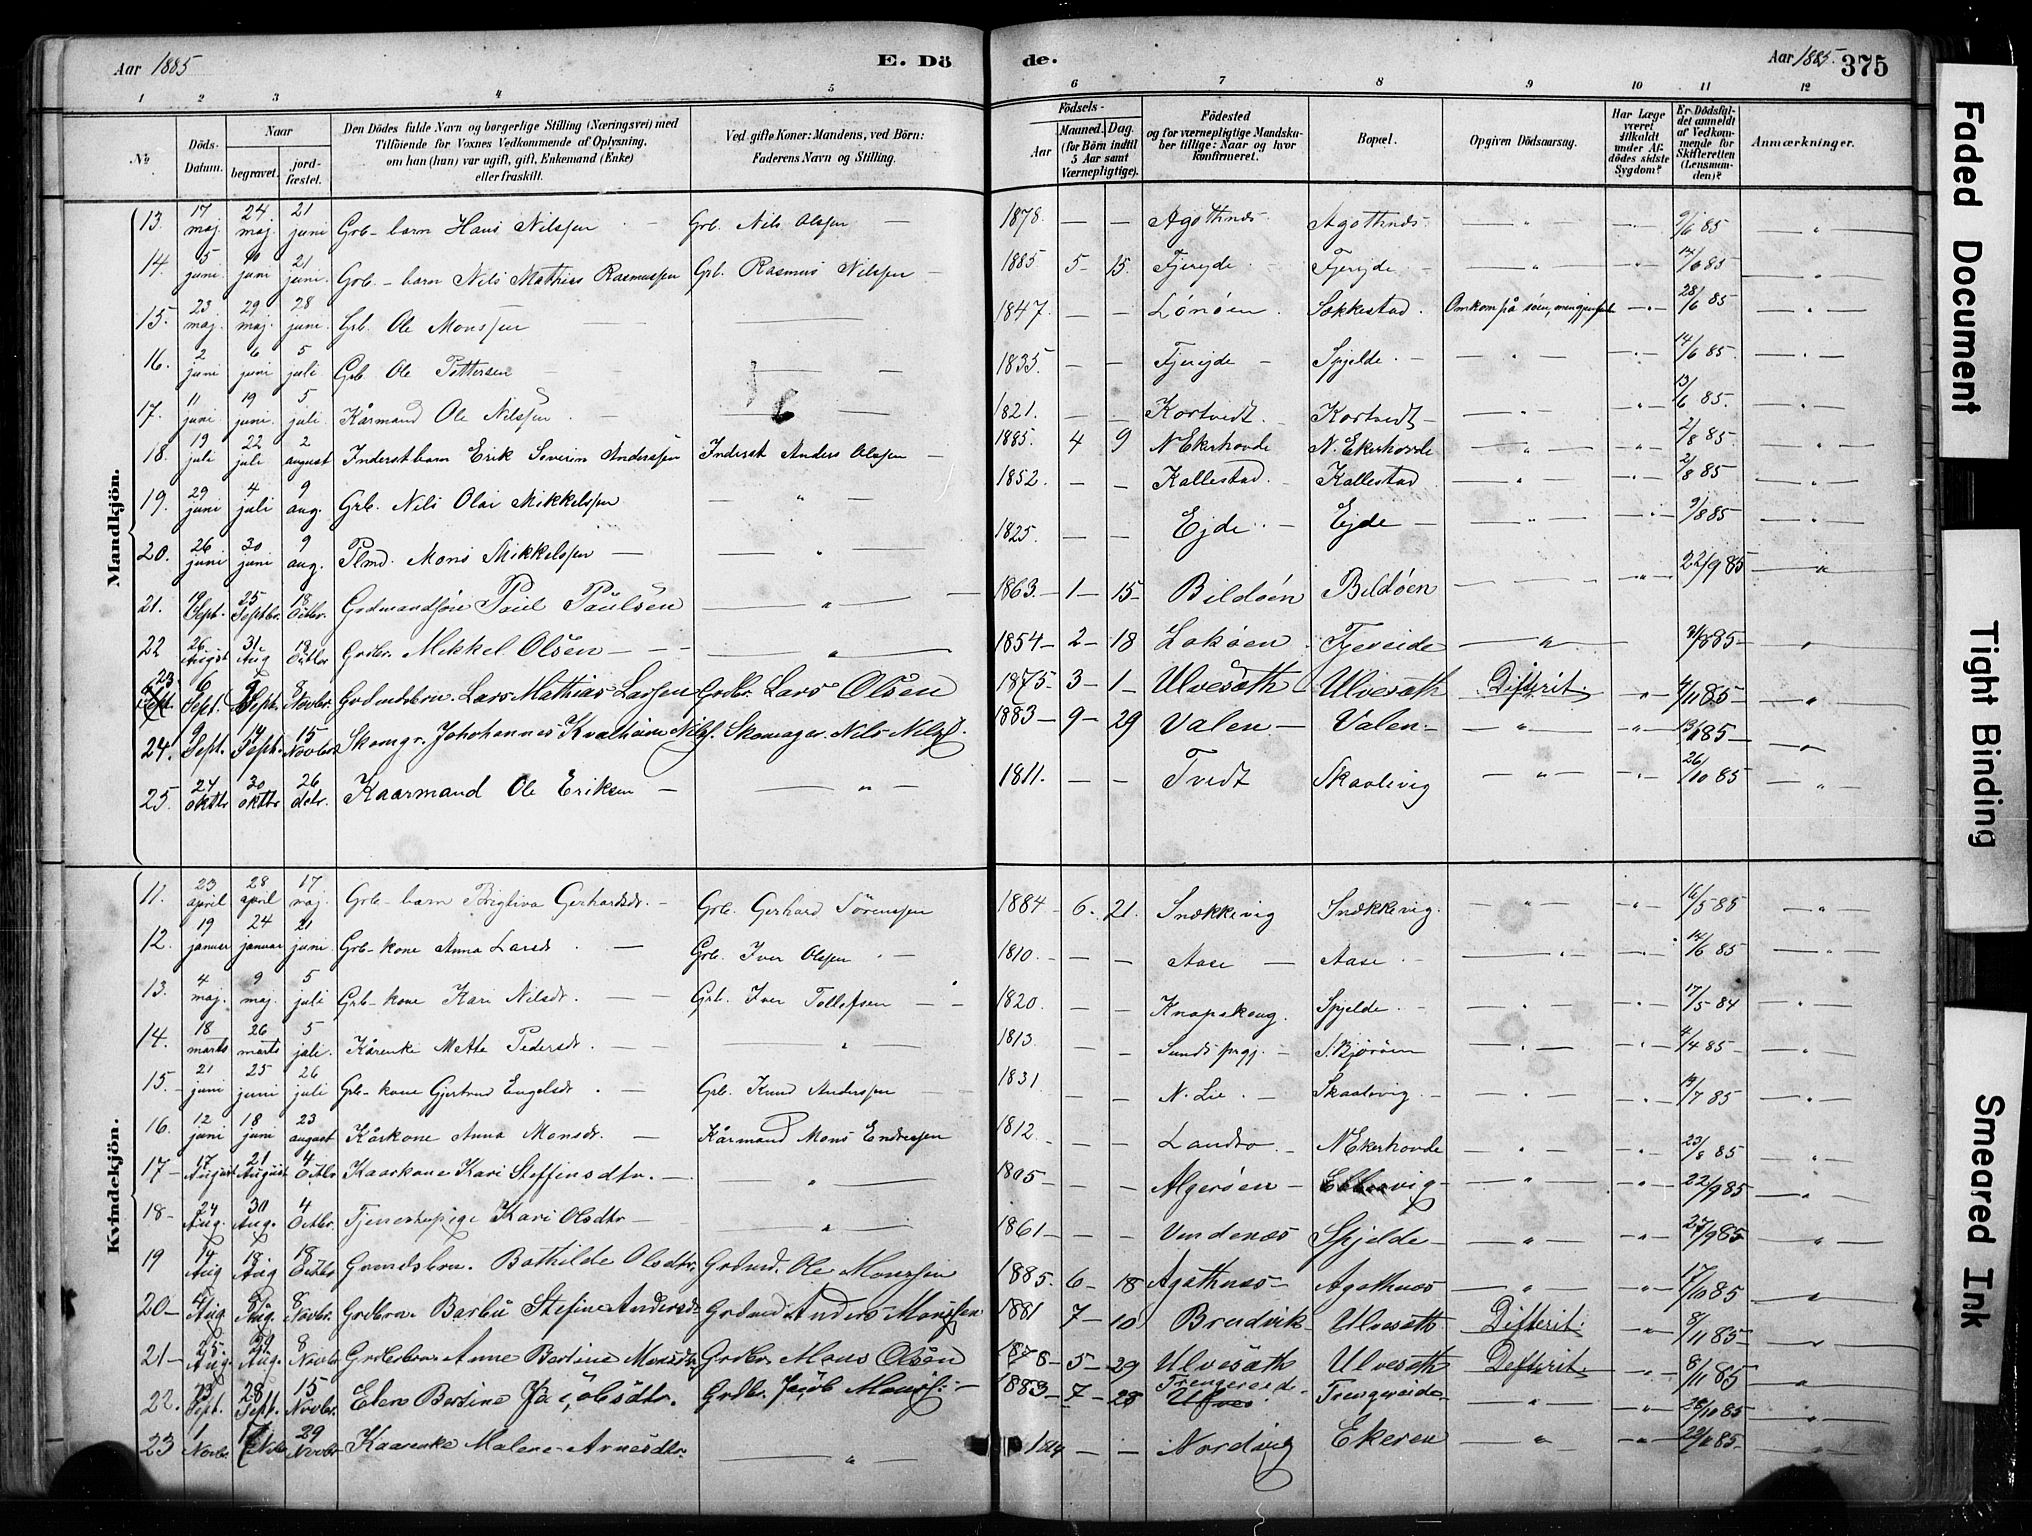 Aar 1885
E. Dö
de.
Aar 1885.
375
1 2 3 4 5 6 7 8 9 10 11 12
No
Döds-Datum.
Naar
begravet.
jord-fæstet.
Den Dödes fulde Navn og borgerlige Stilling (Næringsvei) med
Tilföiende for Voxnes Vedkommende af Oplysning,
om han (hun) var ugift, gift, Enkemand (Enke)
eller fraskilt.
Ved gifte Koner: Mandens, ved Börn:
Faderens Navn og Stilling.
Födsels-
Aar
Maaned. Dag.
(for Börn indtil
5 Aar samt
Værnepligtige).
Födested
og for værnepligtige Mandska-
ber tillige: Naar og hvor
konfirmeret.
Bopæl.
Opgiven Dödsaarsag.
Har Læge
været
tilkaldt
under Af-
dödes sidste
Sygdom?
Er Dödsfal-
det anmeldt
af Vedkom-
mende for
Skifteretten
(Lensman-
den)?
Anmærkninger.
Mandkjön.
13. 17 maj. 24 maj. 21 juni Grb-barn Hans Nilssen Grb. Nils Olssen 1878 — — Agothnes Agothnes 9/6 85
14. 5 juni 10 juni 21 juni. Grb-barn Nils Mathias Rasmussen Grb. Rasmus Nilssen 1885 5 15. Fjerejde Fjerejde 14/6 85
15. 23 maj. 29 maj. 28 juni. Grb. Ole Monssen 1847. — — Lönöen Søkkestad. Omkom på söen, 28/6 85
16. 2 juni 6 juni 5 juli Grb. Ole Pettersen 1835 — — Fjerejde Spjelde 14/6 85
17. 11 juni 19 juni. 5 juli. Kårmand Ole Nilssen 1821. — — Kortvedt Kortvedt 13/6 85.
18. 19 juli 22 juli 2 august Inderstbarn Erik Severin Anderssen Inderst Anders Olssen 1885. 4 9 N. Ekerhovde N. Ekerhovde 2/8 85
19. 29 juni 4 juli 9 aug. Grb. Nils Olai Mikkelssen 1852 — — Kallestad Kallestad 2/8 85
20. 26 juni 30 juni 9 aug. Plmd. Mons Mikkelssen 1825. — — Ejde Ejde 2/8 85
21. 19 Sept. 25 Septbr. 18 Octbr. Grdmandsön Paul Paulsen 1863 1 15 Bildöen Bildöen 22/9 85
22 26 August 31 Aug 18 Octbr Grdbr. Mikkel Olsen 1854 2 18 Loköen Fjereide 31/8 85
23 6 Sept. 9 Sept. 8 Novbr. Grdmdsbrn. Lars Mathias Larsen Grdbr. Lars Olsen 1875 3 1 Ulvesæth Ulvesæth Difterit. 4/11 85
24. 9 Sept. 14 Sept. 15 Novbr Skomgr. Johohannes Kvalheim Nilss. Skomager Nils Nilss. 1883 9 29 Valen Valen 85
25. 24 oktbr 30 oktbr 26 dcbr. Kaarmand Ole Eriksen 1811. — — Tvedt Skaalevig 26/10 85
Kvindekjön.
11. 23 april 28 april 17 maj. Grb-barn Brigtiva Gerhardsdr. Grb. Gerhard Sörenssen 1884 6. 21. Snækkevig Snækkevig. 16/5 85
12. 19 januar 24 januar 21 juni. Grb-kone Anna Larsdr Grb. Iver Olssen 1810. — — Aase Aase 14/6 85
13. 4 maj. 9 maj. 5 juli Grb-kone Kari Nilsdr. Grb. Iver Tollefsen 1820 — — Knapskoug. Spjelde 17/5 84
14. 18 marts 26 marts 5 juli. Kårenke Mette Pedersdr. 1813 — — Sunds prgj. S. Björöen 4/4 85
15. 21 juni 25 juni 26 juli Grb-kone Gjertrud Engelsdr Grb. Knud Anderssen 1831 — — N. Lie Skaalevig 19/7 85
16. 12 juni 18 juni 23 august Kårkone Anna Monsdr. Kårmand Mons Endressen 1812 — — Landro N. Ekerhovde 23/8 85
17 17 August 21 August 4 Octbr Kaarkone Kari Steffensdtr. 1805 — — Algeröen Ebbesvig 22/9 85
18 24 Aug. 30 Aug. 4 Octbr. Tjenestepige Kari Olsdtr 1861 — — Vindenæs Spjelde 27/9 85
19 14 Aug 18 Aug 18 Octbr Grmdsbrn. Bothilde Olsdtr. Grdmd. Ole Monssen 1885. 6 18 Agathnes Agothnes 17/10 85
20 4 Aug Aug. 8 Novbr. Grdbrn. Barbu Stefine Andersdr Grdmd Anders Monssen 1881 7 10 Bredvik Ulvesæth Difterit. 8/11 85
21 25 Aug. 29 Aug. 8 Novbr Grdbrbrn Anne Bertine Monsdtr Grdbr Mons Olsen 1878 5 29 Ulvesæth Ulvesæth Defterit. 8/11 85
22. 23 Sept. 28 Sept. 15 Novbr. Elen Bertine Jacobsdtr. Grdbr. Jacob Monss. 1883 7 28 Trengereide Trengereide 28/10 85
23 1 Novbr. 7 Nvbr 29 Novbr Kaarenke Malene Arnesdtr. — — Nordvig Ekeren 85
Faded Document
Tight Binding
Smeared Ink